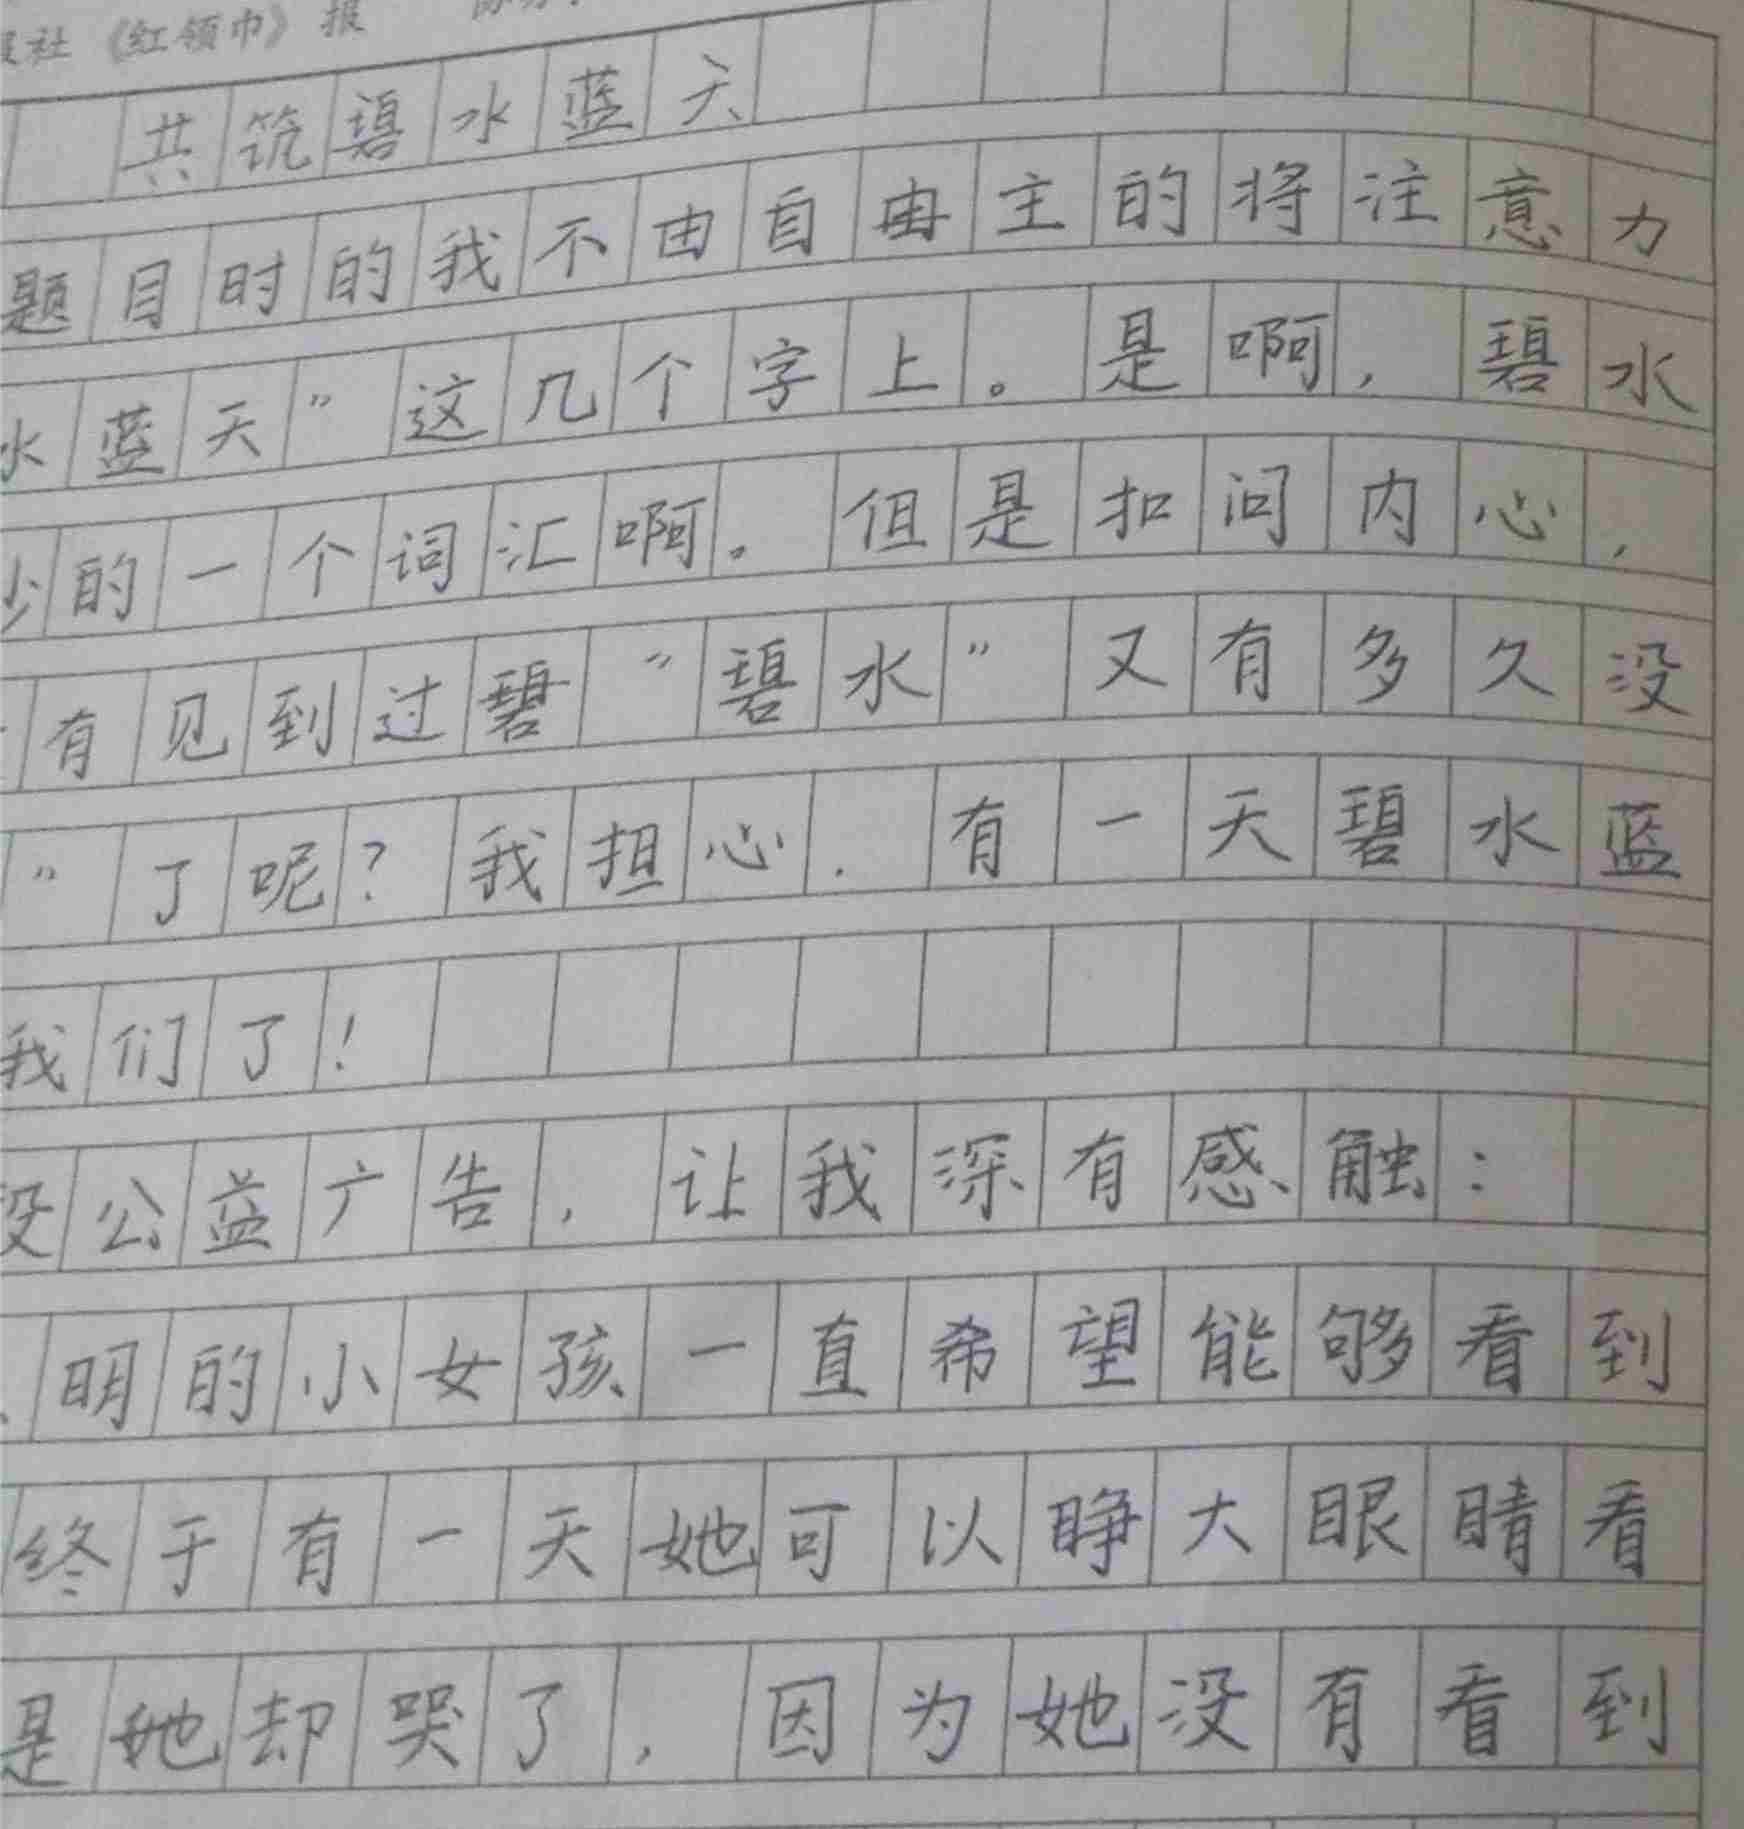 报社《红领巾》报
共筑碧水蓝天
题目时的我不由自由主的将注意力
水蓝天”这几个字上。是啊，碧水
少的一个词汇啊。但是扣问内心，
有见到过碧“碧水”又有多久没
”了呢？我担心．有一天碧水蓝
我们了！
段公益广告，让我深有感触：
明的小女孩一直希望能够看到
终于有一天她可以睁大眼睛看
是她却哭了，因为她没有看到